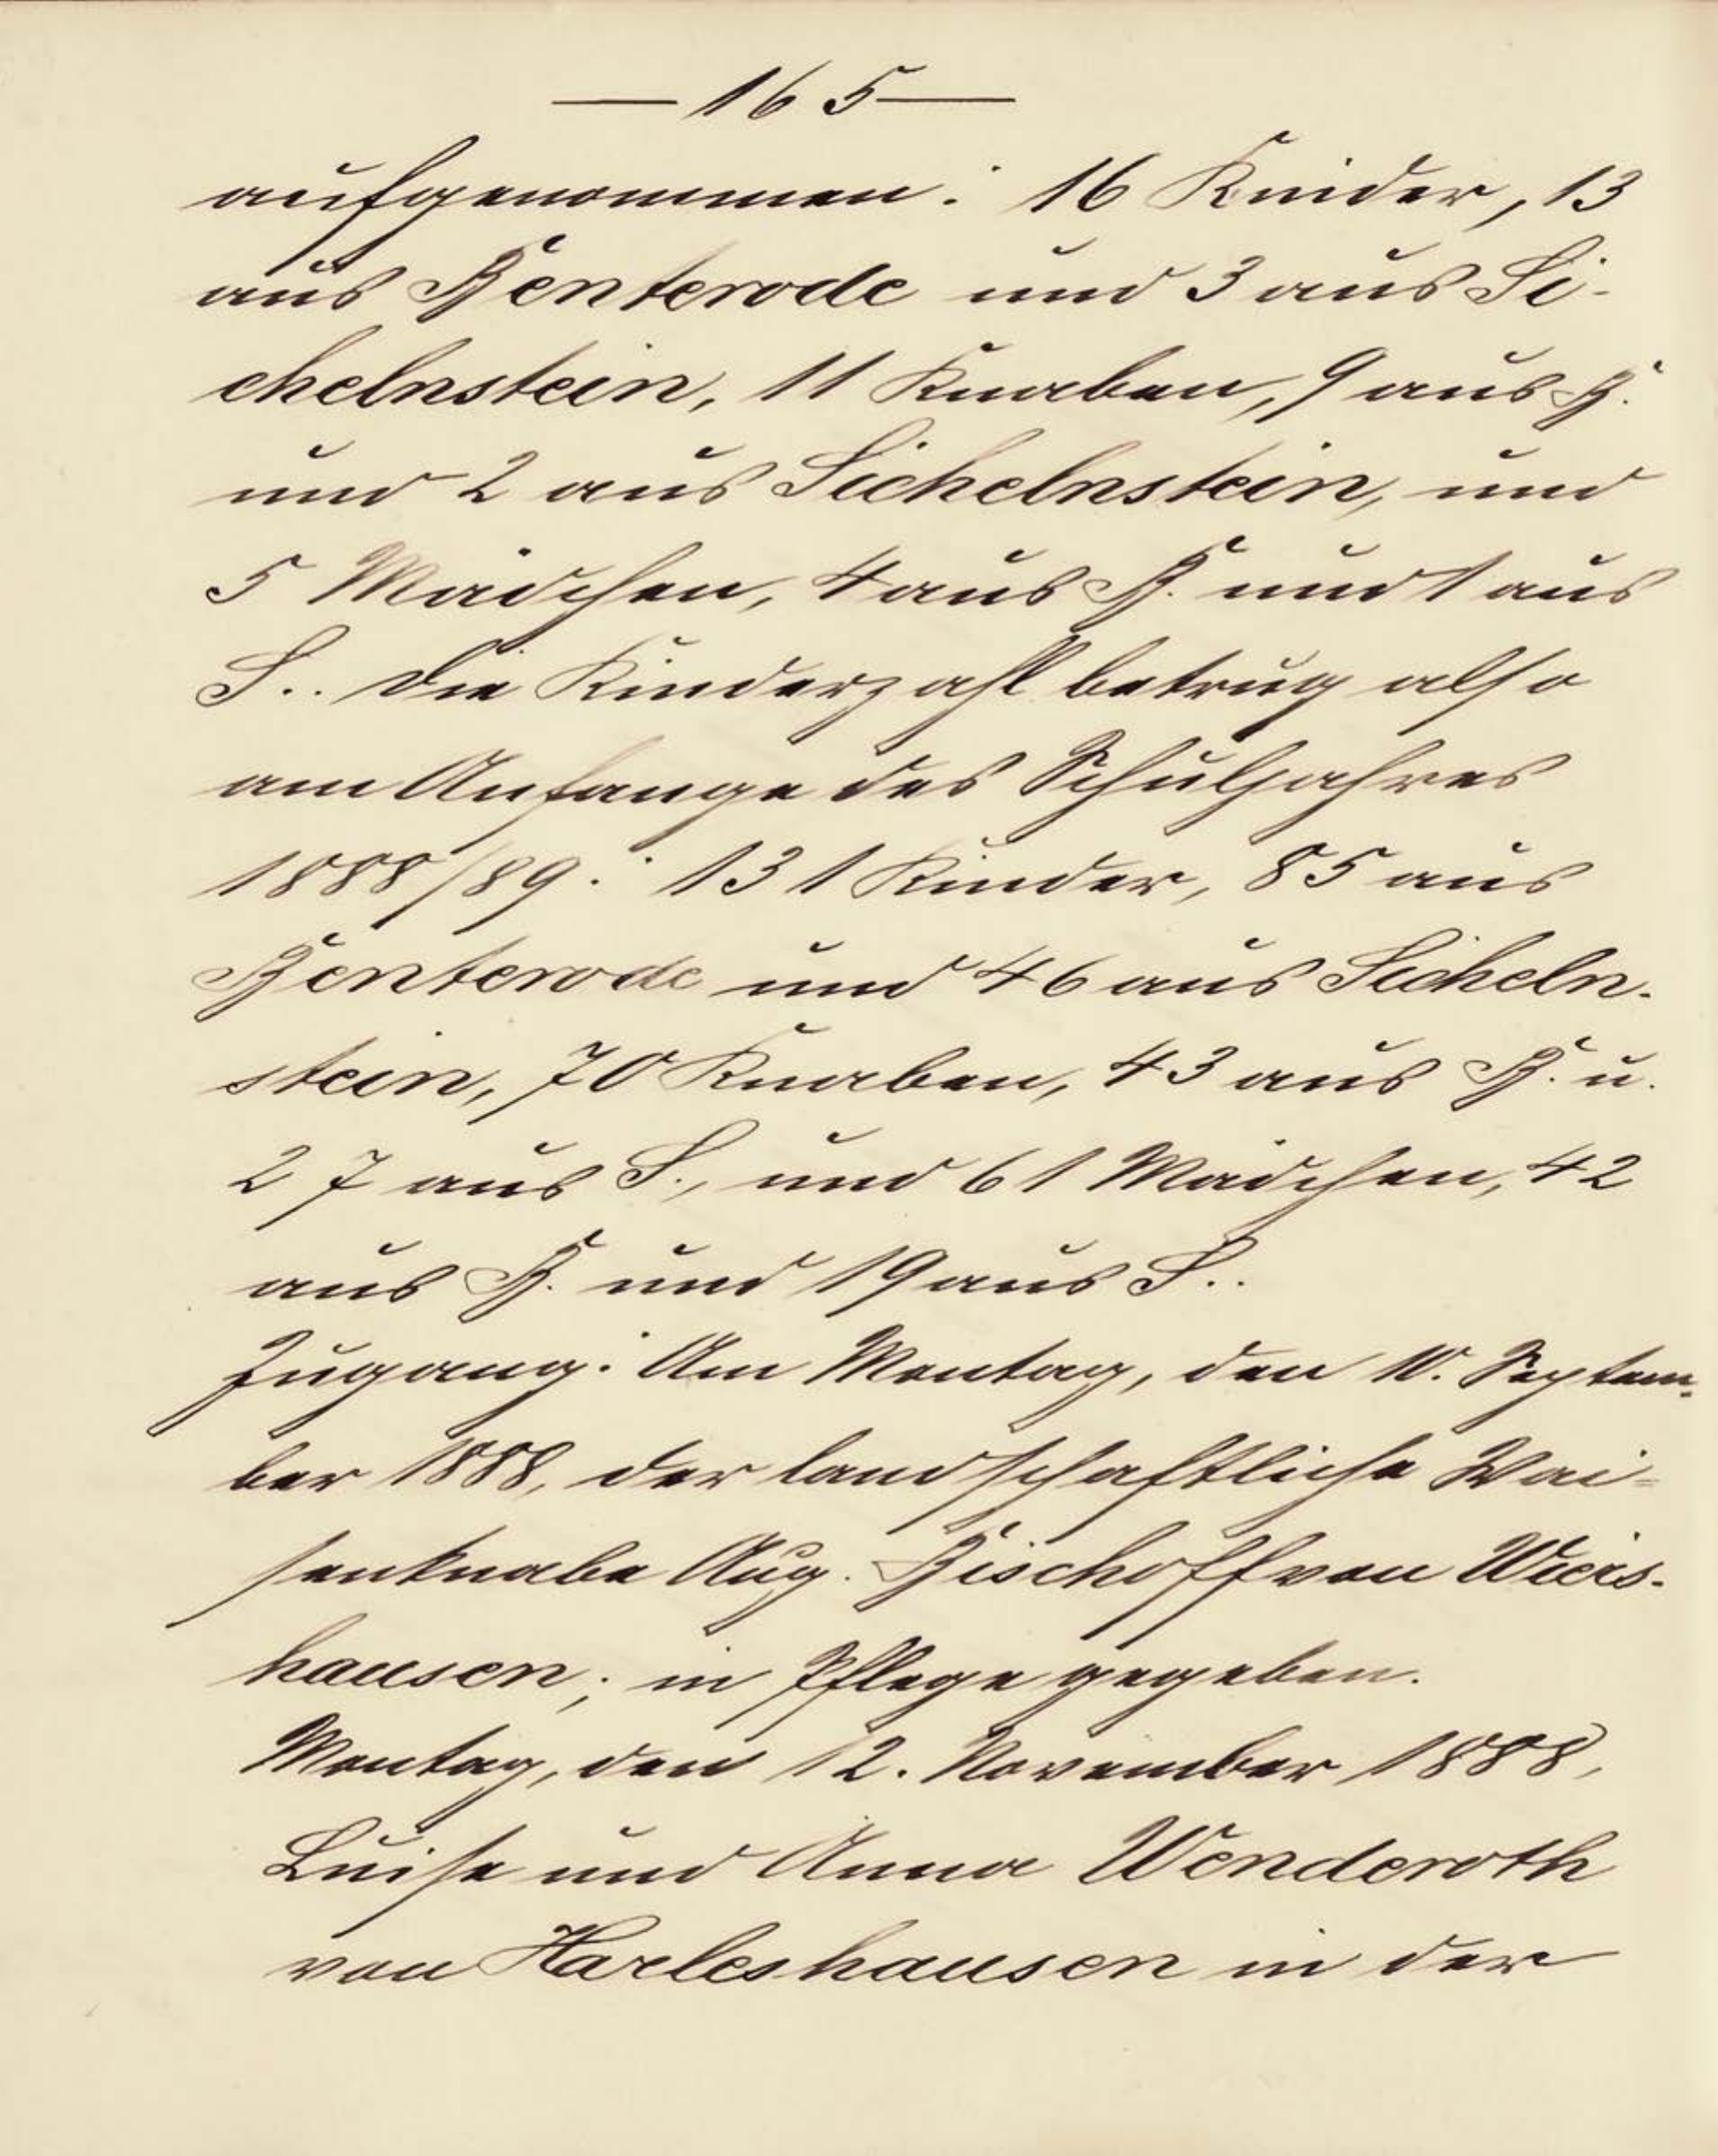 — 165 —
aufgenommen: 16 Kinder, 13
aus Benterode und 3 aus Si-
chelnstein, 11 Knaben, 9 aus B.
und 2 aus Sichelnstein, und
5 Mädchen, 4 aus B. und 1 aus
S.. Die Kinderzahl betrug also
am Anfange des Schuljahres
1888/89: 131 Kinder, 85 aus
Benterode und 46 aus Sicheln-
stein, 70 Knaben, 43 aus B. u.
27 aus S., und 61 Mädchen, 42
aus B. und 19 aus S..
Zugang: Am Montag, den 10. Septem-
ber 1888, der landschaftliche Wai-
senknabe Aug. Bischoff von Wiers-
hausen; in Pflege gegeben.
Montag, den 12. November 1888,
Luise und Anna Wenderoth
von Harleshausen in der